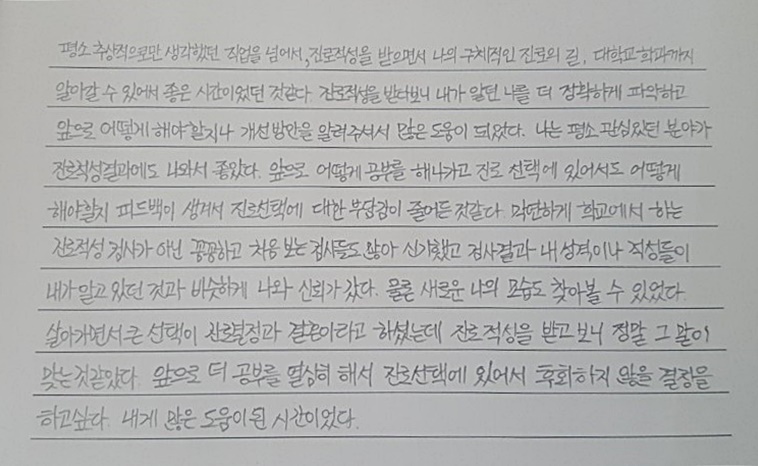 평소 추상적으로만 생각했던 직업을 넘어서, 진로적성을 받으면서 나의 구체적인 진로의 길, 대학교 학과까지
알아갈 수 있어서 좋은 시간이었던 것같다. 진로적성을 받다보니 내가 알던 나를 더 정확하게 파악하고
앞으로 어떻게 해야 할지나 개선방안을 알려주셔서 많은 도움이 되었다. 나는 평소 관심있었던 분야가
진로적성결과에도 나와서 좋았다. 앞으로 어떻게 공부를 해나가고 진로 선택에 있어서도 어떻게
해야할지 피드백이 생겨서 진로선택에 대한 부담감이 줄어든 것같다. 막연하게 학교에서 하는
진로적성 검사가 아닌 꼼꼼하고 처음 보는 검사들도 많아 신기했고 검사결과 내 성격이나 적성들이
내가 알고 있던 것과 비슷하게 나와 신뢰가 갔다. 물론 새로운 나의 모습도 찾아볼 수 있었다.
살아가면서 큰 선택이 진로결정과 결혼이라고 하셨는데 진로적성을 받고 보니 정말 그 말이
맞는것같았다. 앞으로 더 공부를 열심히 해서 진로선택에 있어서 후회하지 않을 결정을
하고싶다. 내게 많은 도움이 된 시간이었다.